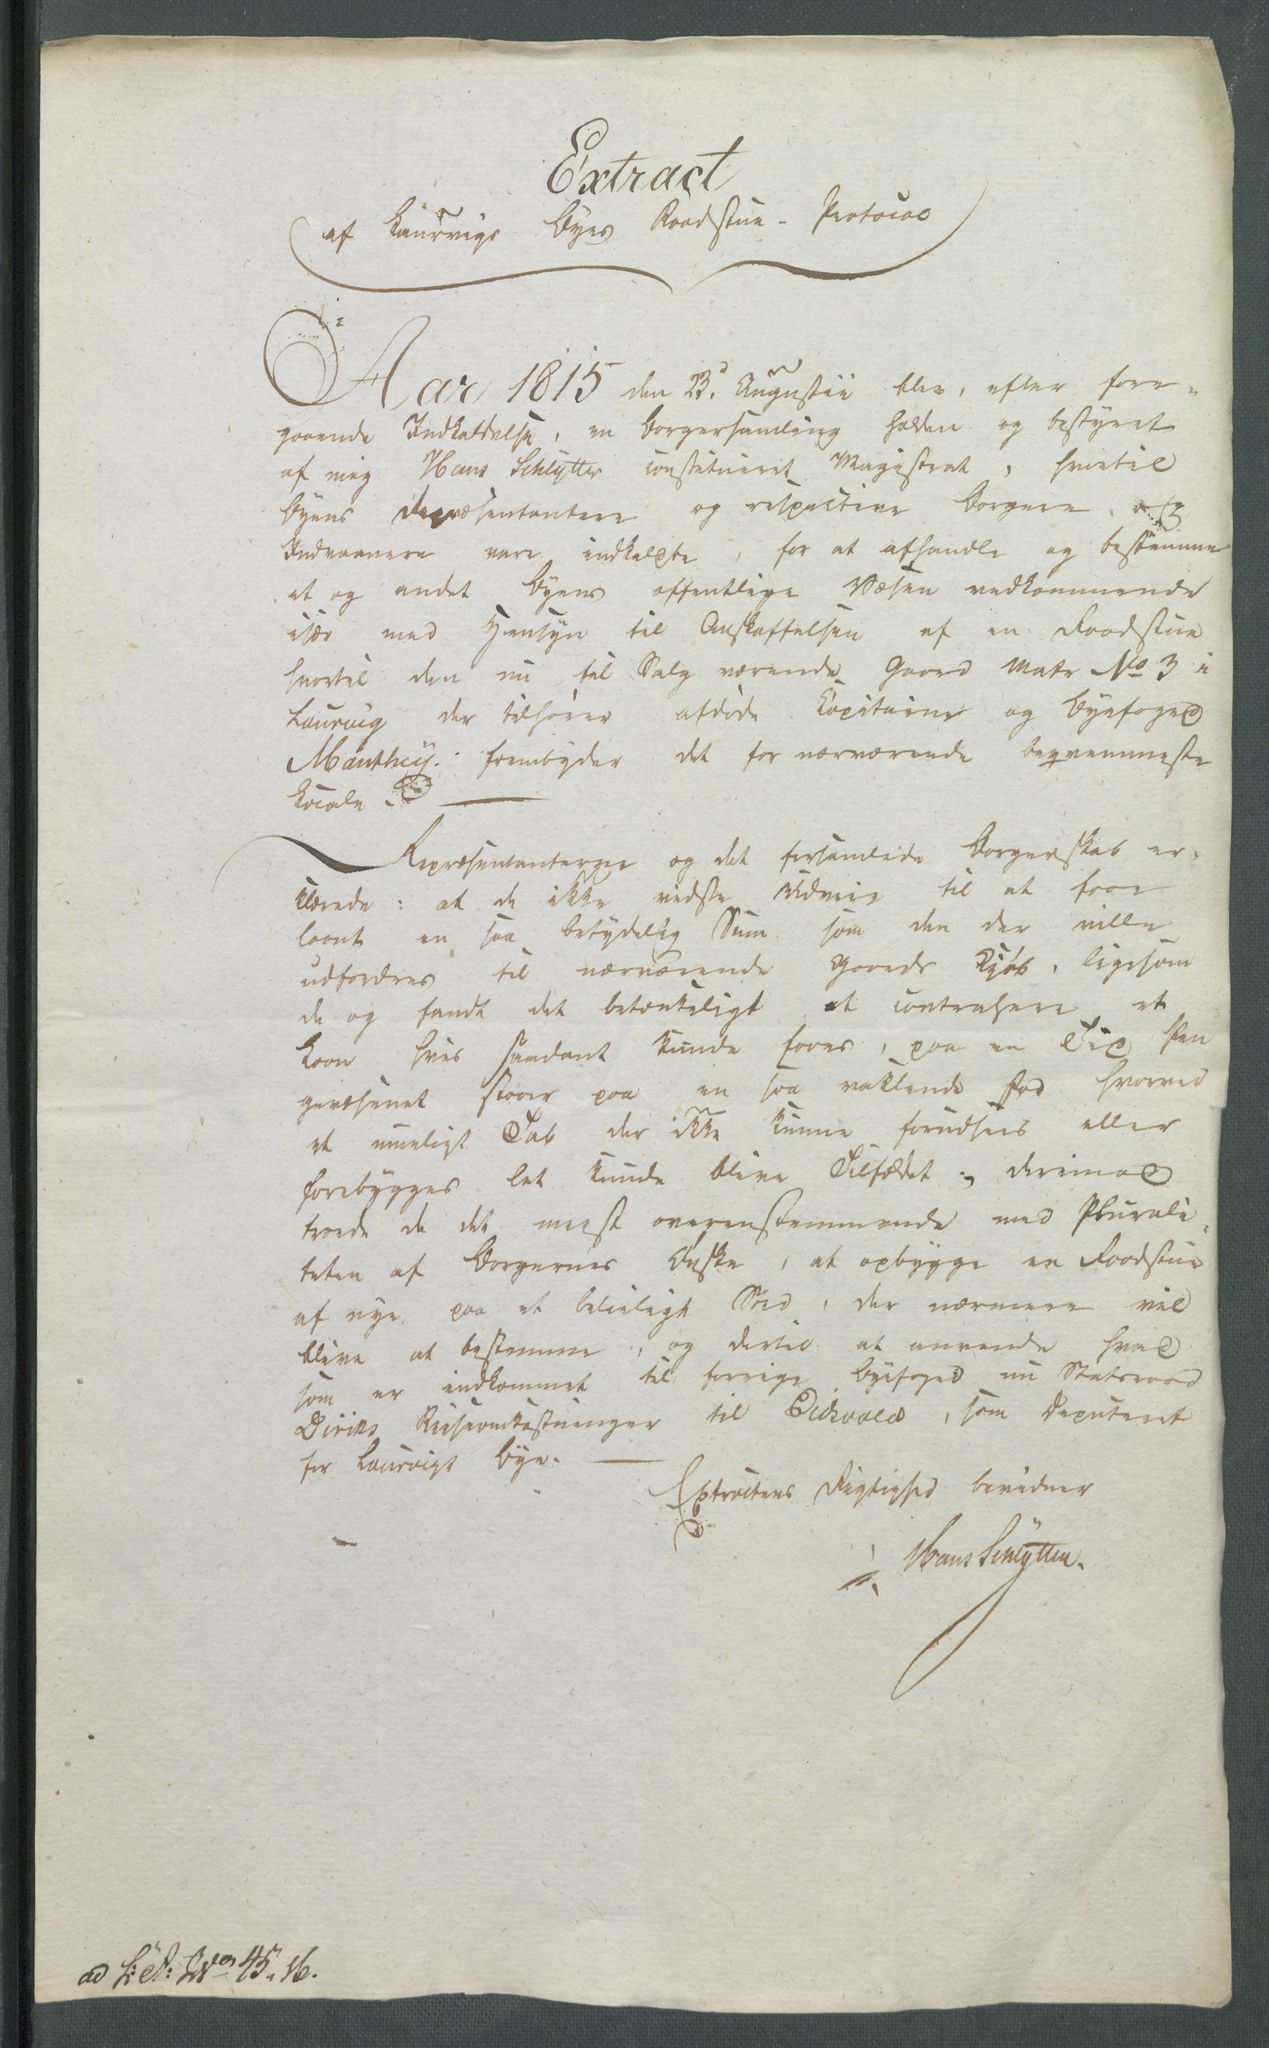 Extract
af Laurvigs Byes Raadstue-Protocol
Aar 1815 den 23d Augustii blev, efter fore-
gaaende Indkaldelse, en Borgersamling holden og bestyret
af mig Hans Schlytter constitueret Magistrat, hvortil
Byens Repræsentantere og respective Borgere og
Indvaanere vare indkaldte, for at afhandle og bestemme
et og andet Byens offentlige Væsen vedkommende
især med Hensyn til Anskaffelsen af en Raadstue
hvortil den nu til Salg værende Gaard Matr No 3 i
Laurvig der tilhører afdøde Capitaine og Byefoged
Manthey frembyder det for nærværende beqvemmeste
Locale.
Repræsentanterne og det forsamlede Borgerskab er-
klærede: at de ikke vidste Udveie til at faae
laant en saa betydelig Sum som den der ville
udfordres til nærværende Gaards Kjøb, ligesom
de og fandt det betænkeligt at contrahere et
Laan hvis saadant kunde faaes, paa en Tid Pen
gevæsenet staaer paa en saa vaklende Fod hvorved
et mueligt Tab der ikke kunne forudsees eller
forebygges let kunde blive Tilfældet, derimod
troede de det meest overensstemmende med Plurali-
teten af Borgernes Ønske, at opbygge en Raadstue
af nye paa et beleiligt Sted, der nærmere vil
blive at bestemme, og dertil at anvende hvad
som er indkommet til forrige Byefoged nu Statsraad
Diriks Reiseomkostninger til Eidsvold, som Deputeret
for Laurvigs Bye.
Extractens Rigtighed bevidner
Hans Schlytter.
ad No 45.16.